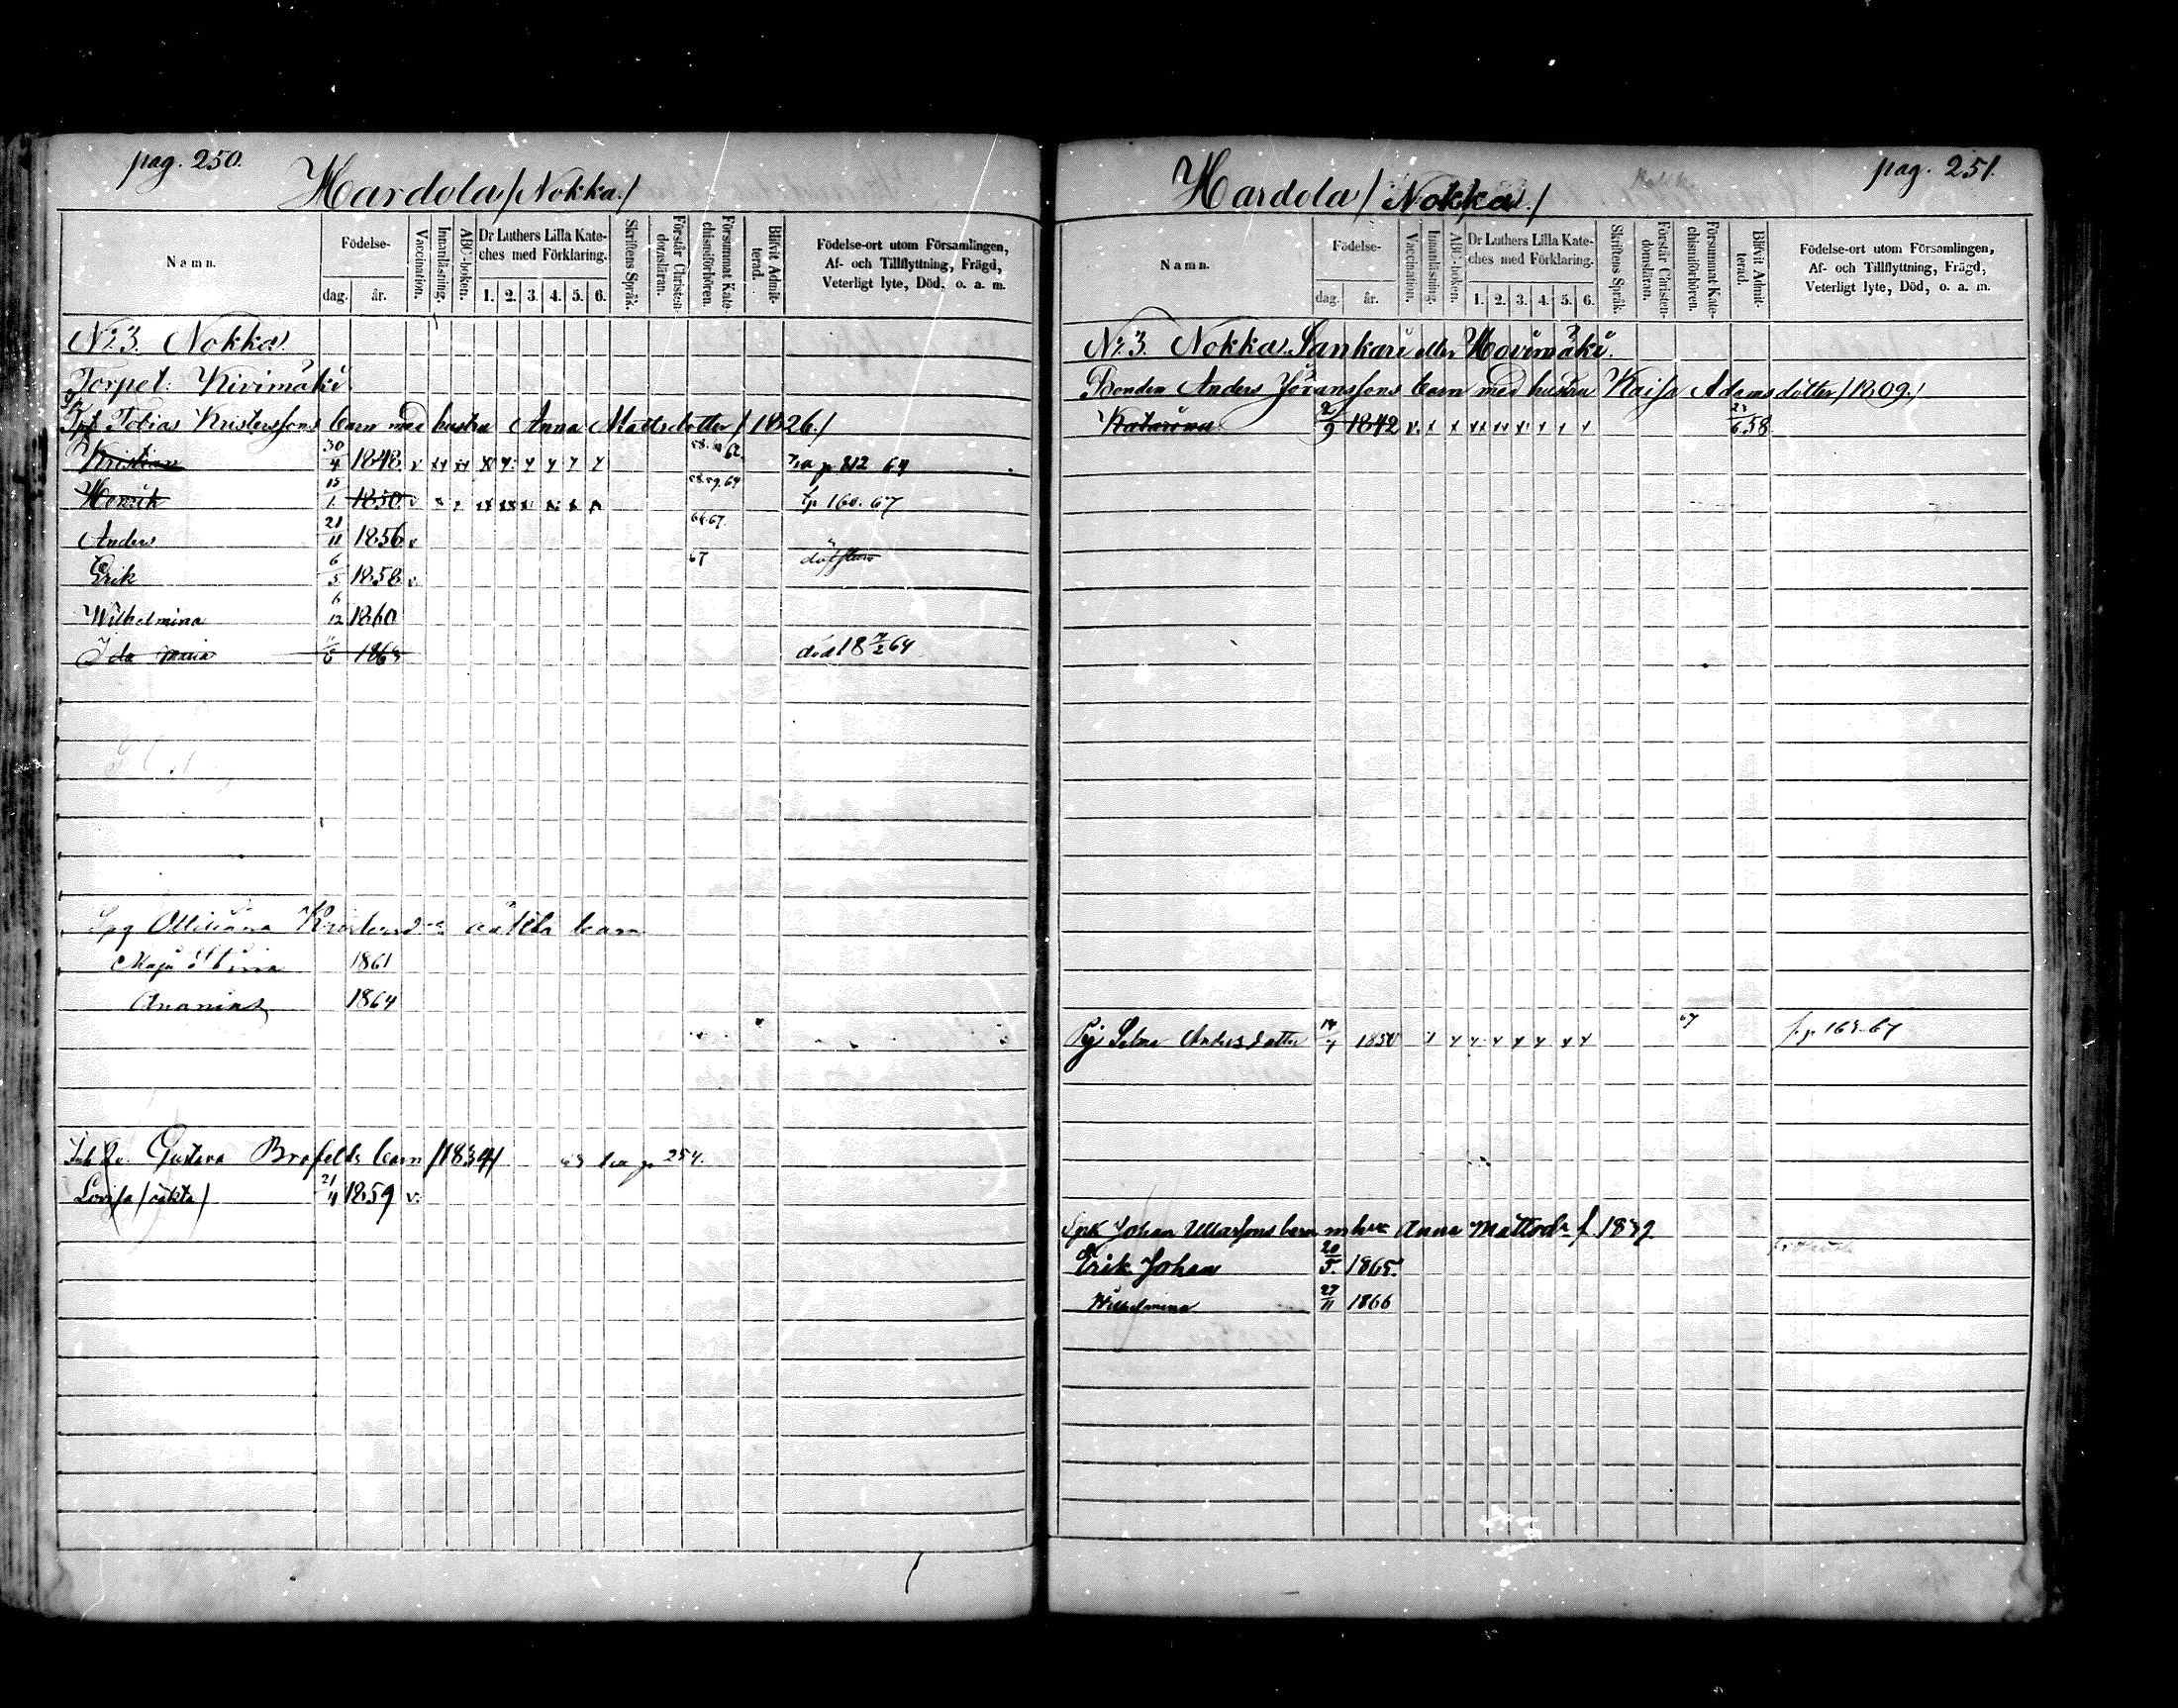 pag. 250.
Hardola / Nokka. /
Namn.
Födelse-
dag. år.
Vaccination.
Innanläsning.
ABC-boken.
Dr Luthers Lilla Kate-
ches med Förklaring.
1. 2. 3. 4. 5. 6.
Skriftens Språk.
Förstår Christen-
domsläran.
Försummat Kate-
chismiförhören.
Blifvit Admit-
terad.
Födelse-ort utom Församlingen,
Af- och Tillflyttning, Frägd,
Veterligt lyte, Död, o. a. m.
No 3. Nokka.
Torpet: Kivimäki
Tobias Kristerssons barn med hustru Anna Mattsdotter / 1826. /
Kristian 30/4 1848 v 62 p 212 64
Henrik 15/1 1850 v 64 p 160. 67
Anders 21/11 1856 v 66.67.
Erik 6/5 1858 v 67
Wilhelmina 6/12 1860
Ida Maria 1863 död 18 7/2 64
oäkta barn
Maja Stina 1861
Ananias 1864
Gustava Brofelds barn / 1834 / 254.
Lovisa / oäkta / 21/4 1859 v.
pag. 251.
Hardola / Nokka. /
Namn.
Födelse-
dag. år.
Vaccination.
Innanläsning.
ABC-boken.
Dr Luthers Lilla Kate-
ches med Förklaring.
1. 2. 3. 4. 5. 6.
Skriftens Språk.
Förstår Christen-
domsläran.
Försummat Kate-
chismiförhören.
Blifvit Admit-
terad.
Födelse-ort utom Församlingen,
Af- och Tillflyttning, Frägd,
Veterligt lyte, Död, o. a. m.
No 3. Nokka. Sankari eller Hovimäki.
Bonden Anders Göranssons barn med hustru Kaisa Adamsdotter / 1809. /
Katarina 2/9 1842 v. 23/6 58
Selma Andersdotter 14/4 1850 67
Johan barn m hu Anna Mattsdr f. 1839
Erik Johan 20/5. 1865.
Wilhelmina 27/11 1866